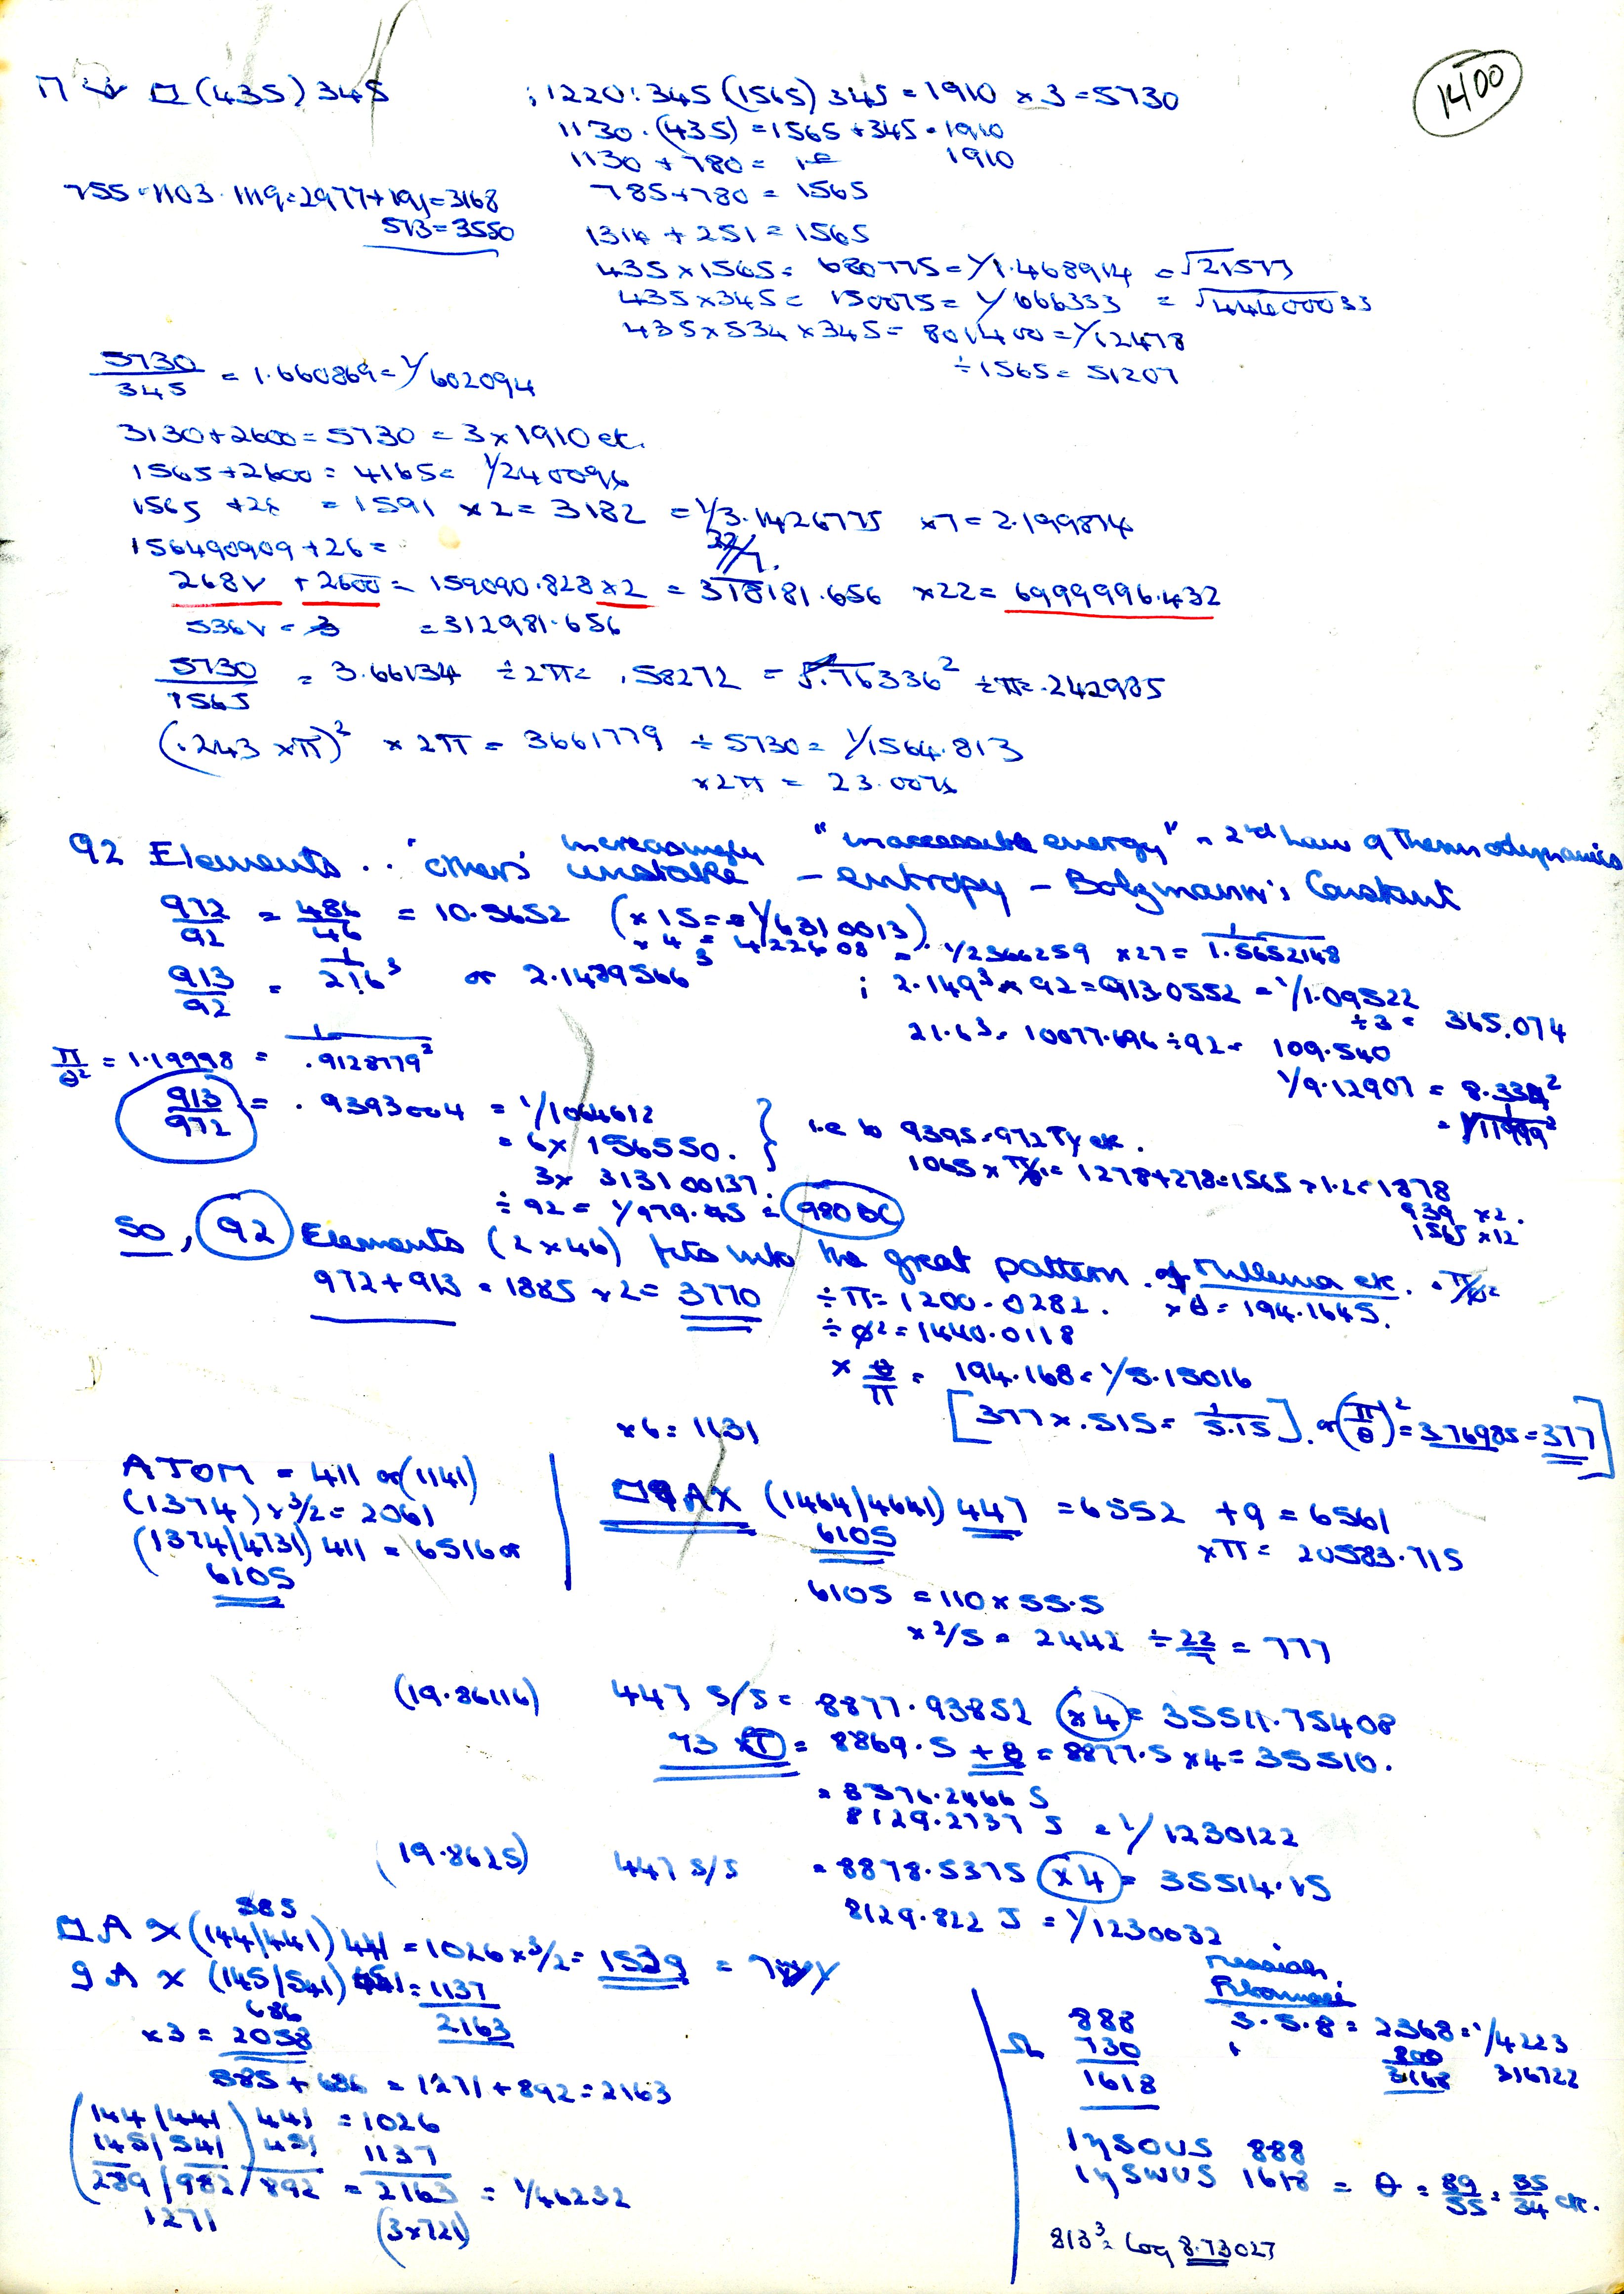 1400
(435) 345
; 1220: 345 (1565) 345 = 1910 × 3 = 5730
1130 · (435) = 1565 + 345 = 1910
1130 + 780 = 1910
755 · 1103 · 1119 = 2977 + 191 = 3168
573 = 3550
785 + 780 = 1565
1314 + 251 = 1565
435 × 1565 = 680775 = 1/1.468914 = √21573
435 × 345 = 150075 = 1/666333 = √44400033
435 × 534 × 345 = 801400 = 1/12478
÷ 1565 = 51207
5730/345 = 1.660869 = 1/602094
3130 + 2600 = 5730 = 3 × 1910 etc.
1565 + 2600 = 4165 = 1/240096
1565 + 26 = 1591 × 2 = 3182 = 1/3.1426775 × 7 = 2.199874
22/7.
156490909 + 26 =
268V + 2600 = 159090.828 × 2 = 318181.656 × 22 = 6999996.432
536V = 3 = 312981.656
5730/1565 = 3.66134 ÷ 2π = .58272 = .76336² ÷ π = .242985
(.243 × π)² × 2π = 3661779 ÷ 5730 = 1/1564.813
× 2π = 23.007
92 Elements .. 'others' increasingly unstable "inaccessible energy" = 2nd Law of Thermodynamics
– entropy – Bolzmann's Constant
972/92 = 486/46 = 10.5652 (× 15 = 1/6310013)
× 4 = 422608 = 1/2366259 × 27 = 1/1.5652148
913/92 = 1/216³ or 2.1489566³ ; 2.149³ × 92 = 913.0552 = 1/1.09522
÷ 3 = 365.074
21.6³ = 10077.696 ÷ 92 = 109.540
π/θ² = 1.19998 = 1/.9128779²
1/9.12907 = 8.334²
= 1/11999²
913/972 = .9393004 = 1/1064612
= 6 × 156550.
3 × 313100137.
÷ 92 = 1/979.45 = 980 BC
i.e to 9395.972 Ty etc.
1065 × π/θ = 1278 + 278 = 1565 × 1.2 = 1878
939 × 2.
1565 × 12
So, 92 Elements (2 × 46) fits into the great pattern of Millennia etc. = π/θ²
972 + 913 = 1885 × 2 = 3770 ÷ π = 1200.0282. × θ = 194.1645.
÷ ø² = 1440.0118
× θ/π = 194.168 = 1/5.15016
[377 × .515 = 1/5.15]. or (π/θ)² = 3.76985 = 377]
× 6 = 1131
ATOM = 411 or (1141)
(1374) × 3/2 = 2061
(1374/4731) 411 = 6516 or
6105
AX (1464/4641) 447 = 6552 + 9 = 6561
6105
× π = 20583.715
6105 = 110 × 55.5
× 2/5 = 2442 ÷ 22/7 = 777
(19.86116) 447 S/S = 8877.93852 ×4 = 35511.75408
73 × T = 8869.5 + 8 = 8877.5 × 4 = 35510.
= 8376.2466 S
8129.2737 S = 1/1230122
(19.8625) 447 S/S = 8878.5375 ×4 = 35514.15
8129.822 J = 1/1230032
585
A × (144/441) 441 = 1026 × 3/2 = 1539
9 A × (145/541) 451 = 1137
686
2163
× 3 = 2058
585 + 686 = 1271 + 892 = 2163
(144/441) 441 = 1026
145/541) 451 1137
289/982/892 = 2163 = 1/46232
1271 (3×721)
Messiah
Fibonacci
888 3.5.8 = 2368 = 1/4223
Ω 730 800
1618 3168 316722
IηSOUS 888
IηSWUS 1618 = θ = 89/55 = 55/34 etc.
813³ = Log 8.73027